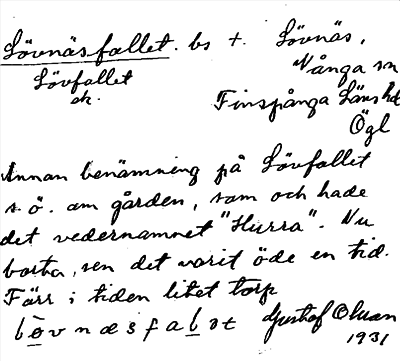 Lövnäsfallet. bs +. Lövnäs,
Lövfallet
ek.
Vånga sn
Finspånga Läns hd
Ögl
Annan benämning på Lövfallet
s.ö. om gården, som och hade
det vedernamnet "Hurra". Nu
borta, sen det varit öde en tid.
Förr i tiden litet torp
Gustaf Olsson
1931